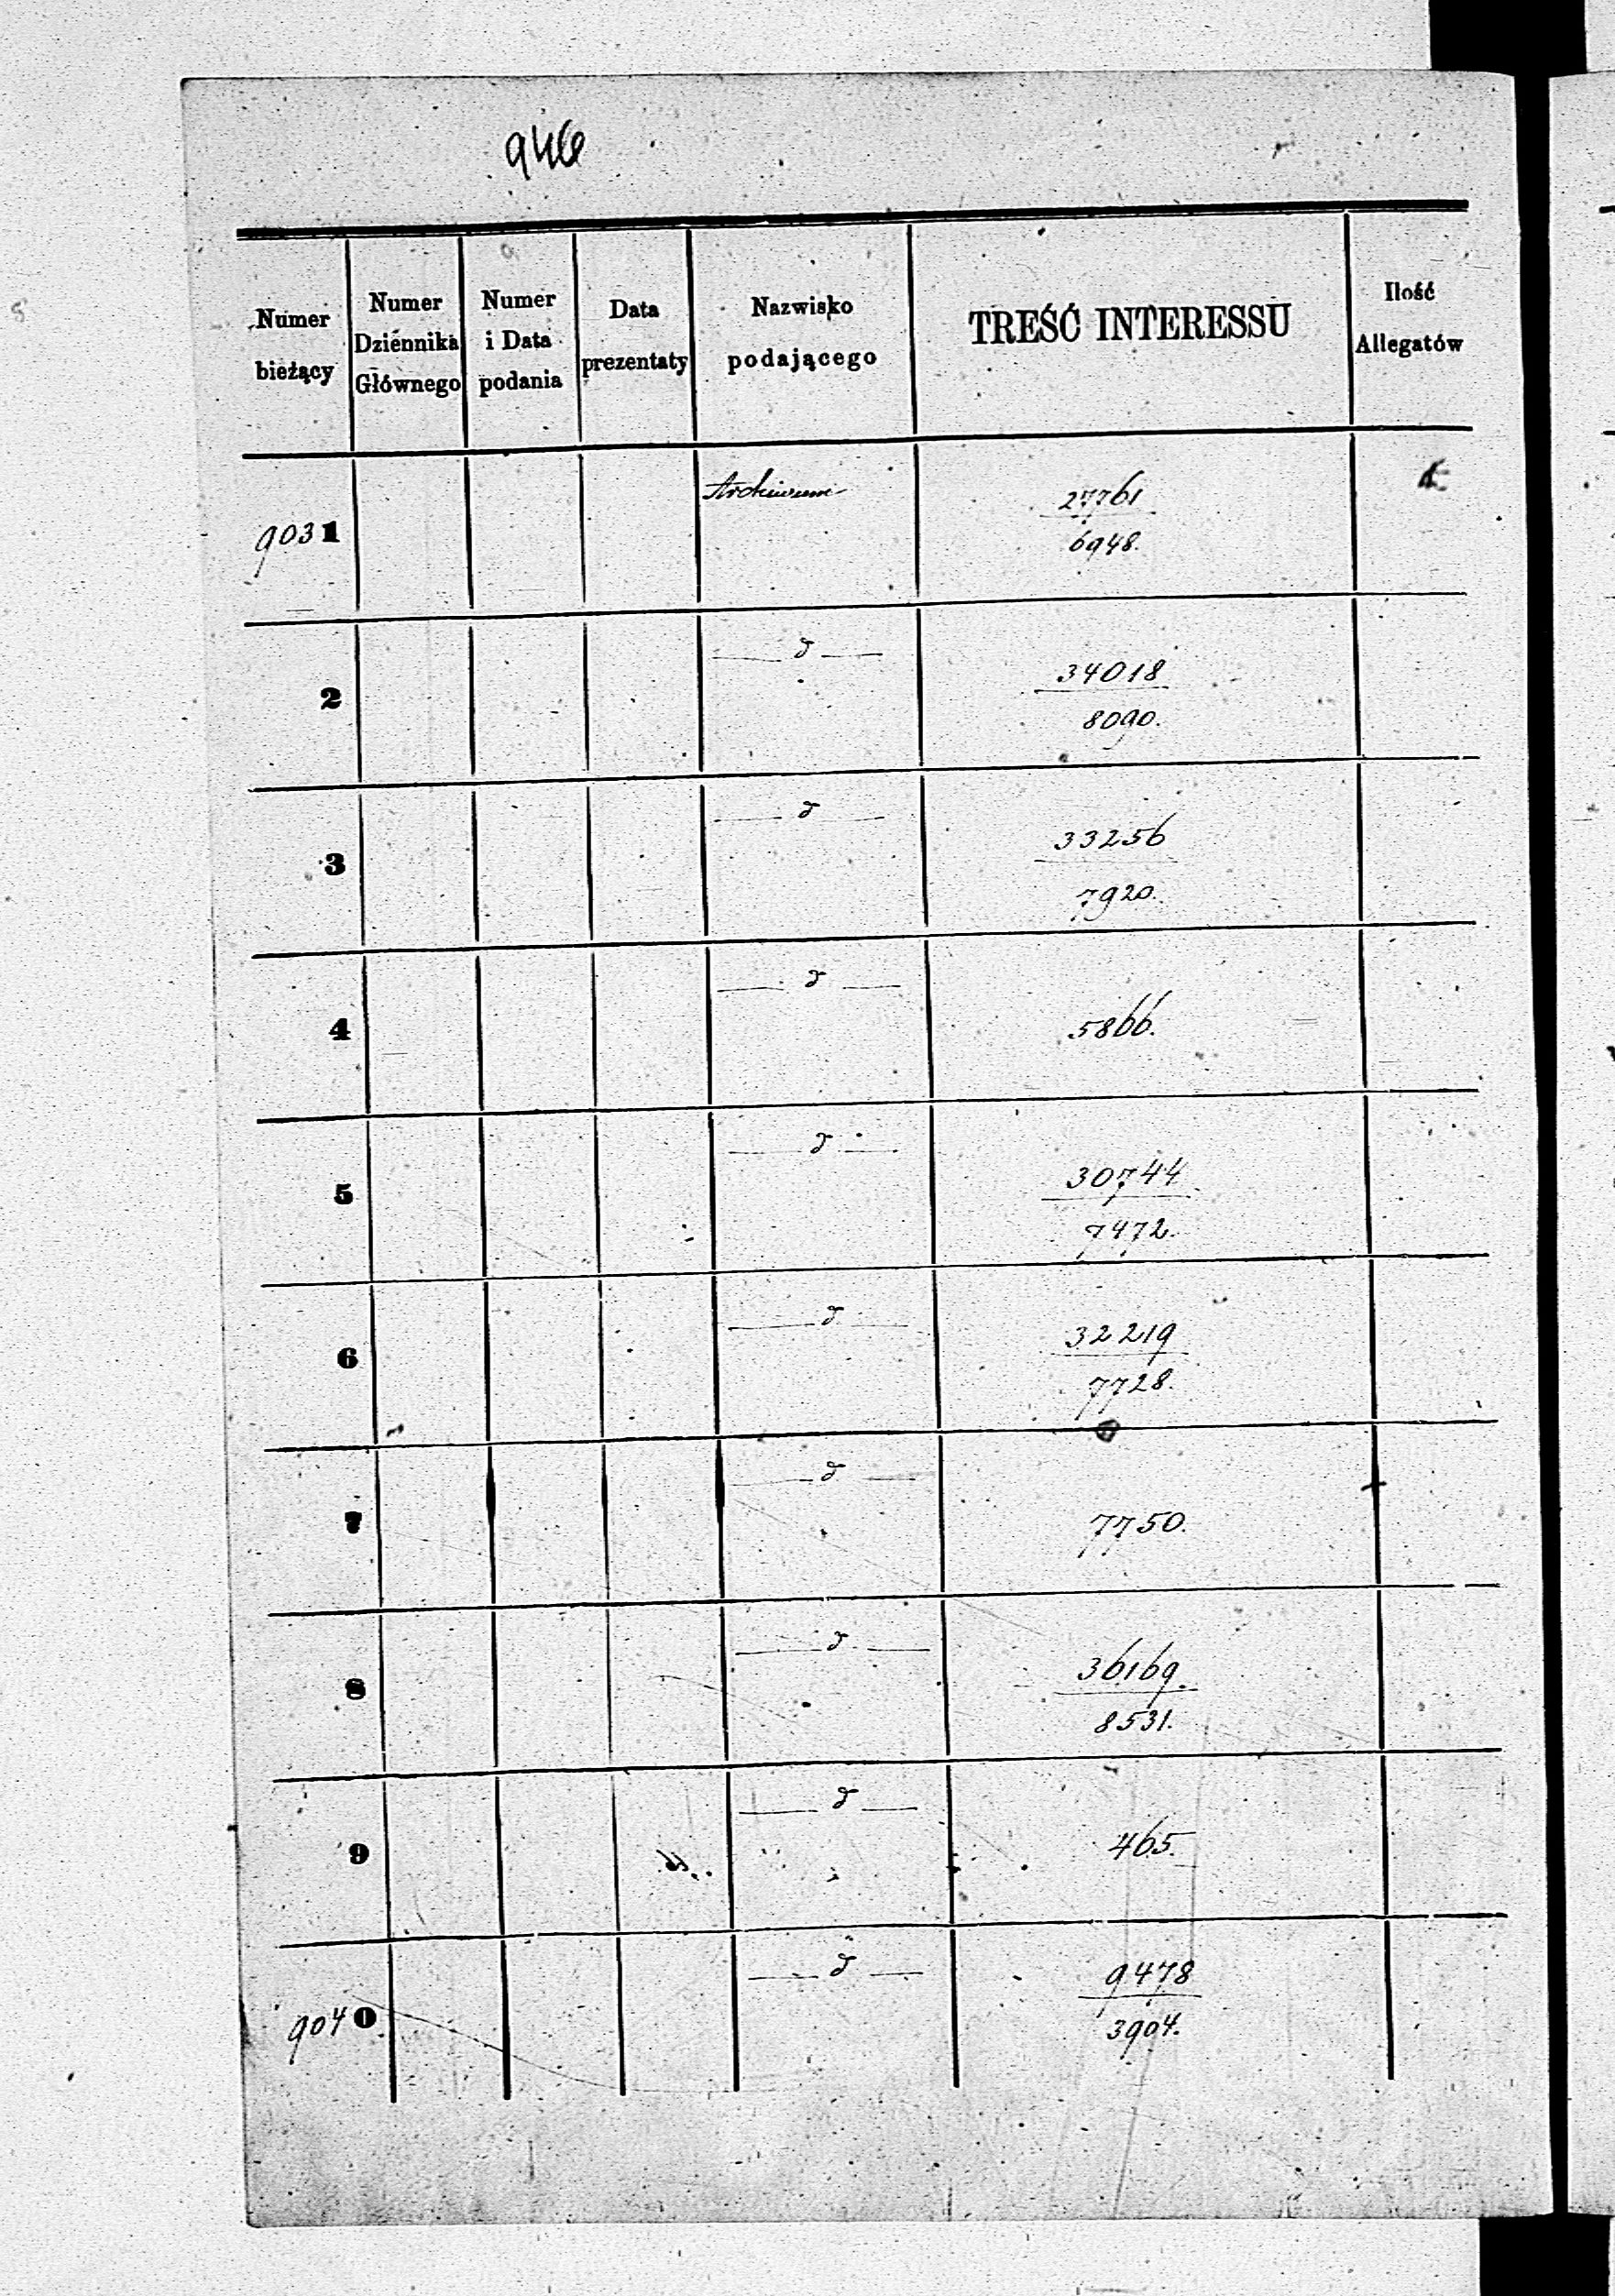 946
Numer bieżący
Numer Dziennika Głównego
Numer i Data podania
Data prezentaty
Nazwisko podającego
TREŚĆ INTERESSU
Ilość Allegatów
9031
Archiwum
27761
6948.
2
d
34018
8090.
3
d
33256
7920.
4
d
5866.
5
d
30744
7472.
6
d
32219
7728.
7
d
7750.
8
d
36169.
8531.
9
d
465.
9040
d
9478
3904.